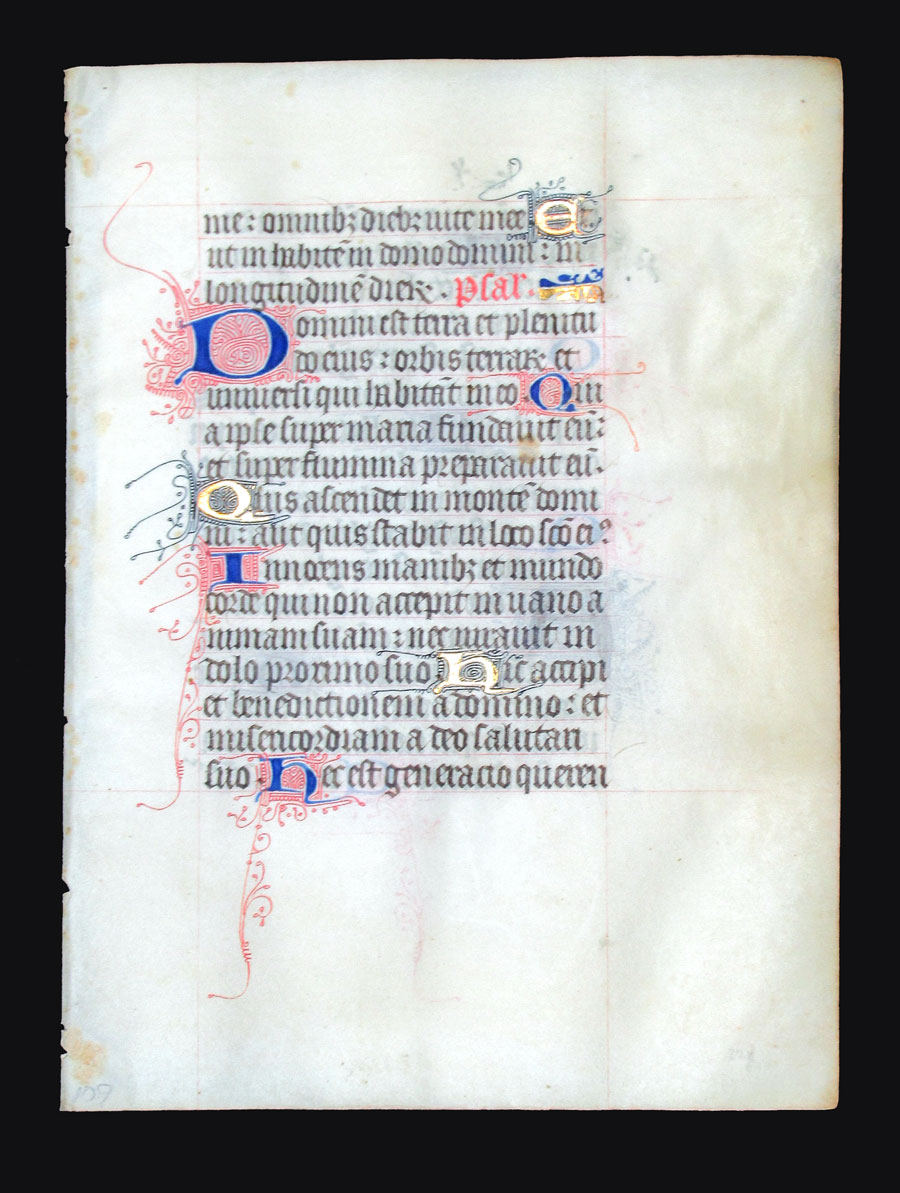 me : omnibꝫ diebꝫ uite mee Et
ut in habitē in domo domini : in
longitudinē dieꝝ . Psal .
Domini est terra et plenitu
do eius : orbis terraꝝ et
uniuersi qui habitāt in eo . Qui
a ipse super maria fundauit eū :
et super flumina preparauit eū .
Quis ascendet in montē domi
ni : aut quis stabit in loco scō eiꝰ
Innocens manibꝫ et mundo
corde qui non accepit in uano a
nimam suam : nec iurauit in
dolo proximo suo hic accipi
et benedictionem a domino : et
misericordiam a deo salutari
suo . Hec est generacio queren